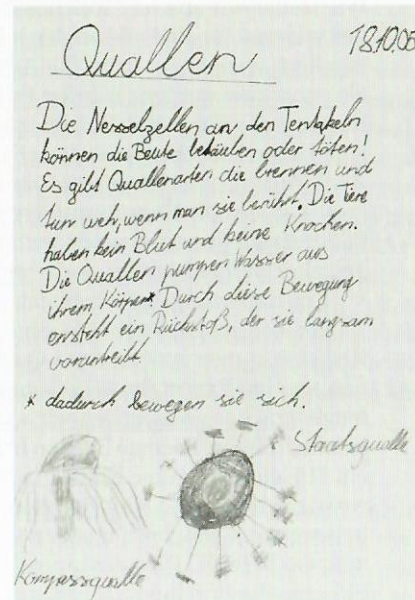 Quallen
18.10.05
Die Nesselzellen an den Tentakeln
können die Beute betäuben oder töten!
Es gibt Quallenarten die brennen und
tun weh, wenn man sie berührt. Die Tiere
haben kein Blut und keine Knochen.
Die Quallen pumpen Wasser aus
ihrem Körper* Durch diese Bewegung
ensteht ein Rückstoß, der sie langsam
vorantreibt.
* dadurch bewegen sie sich.
Staatsqualle
Kompassqualle